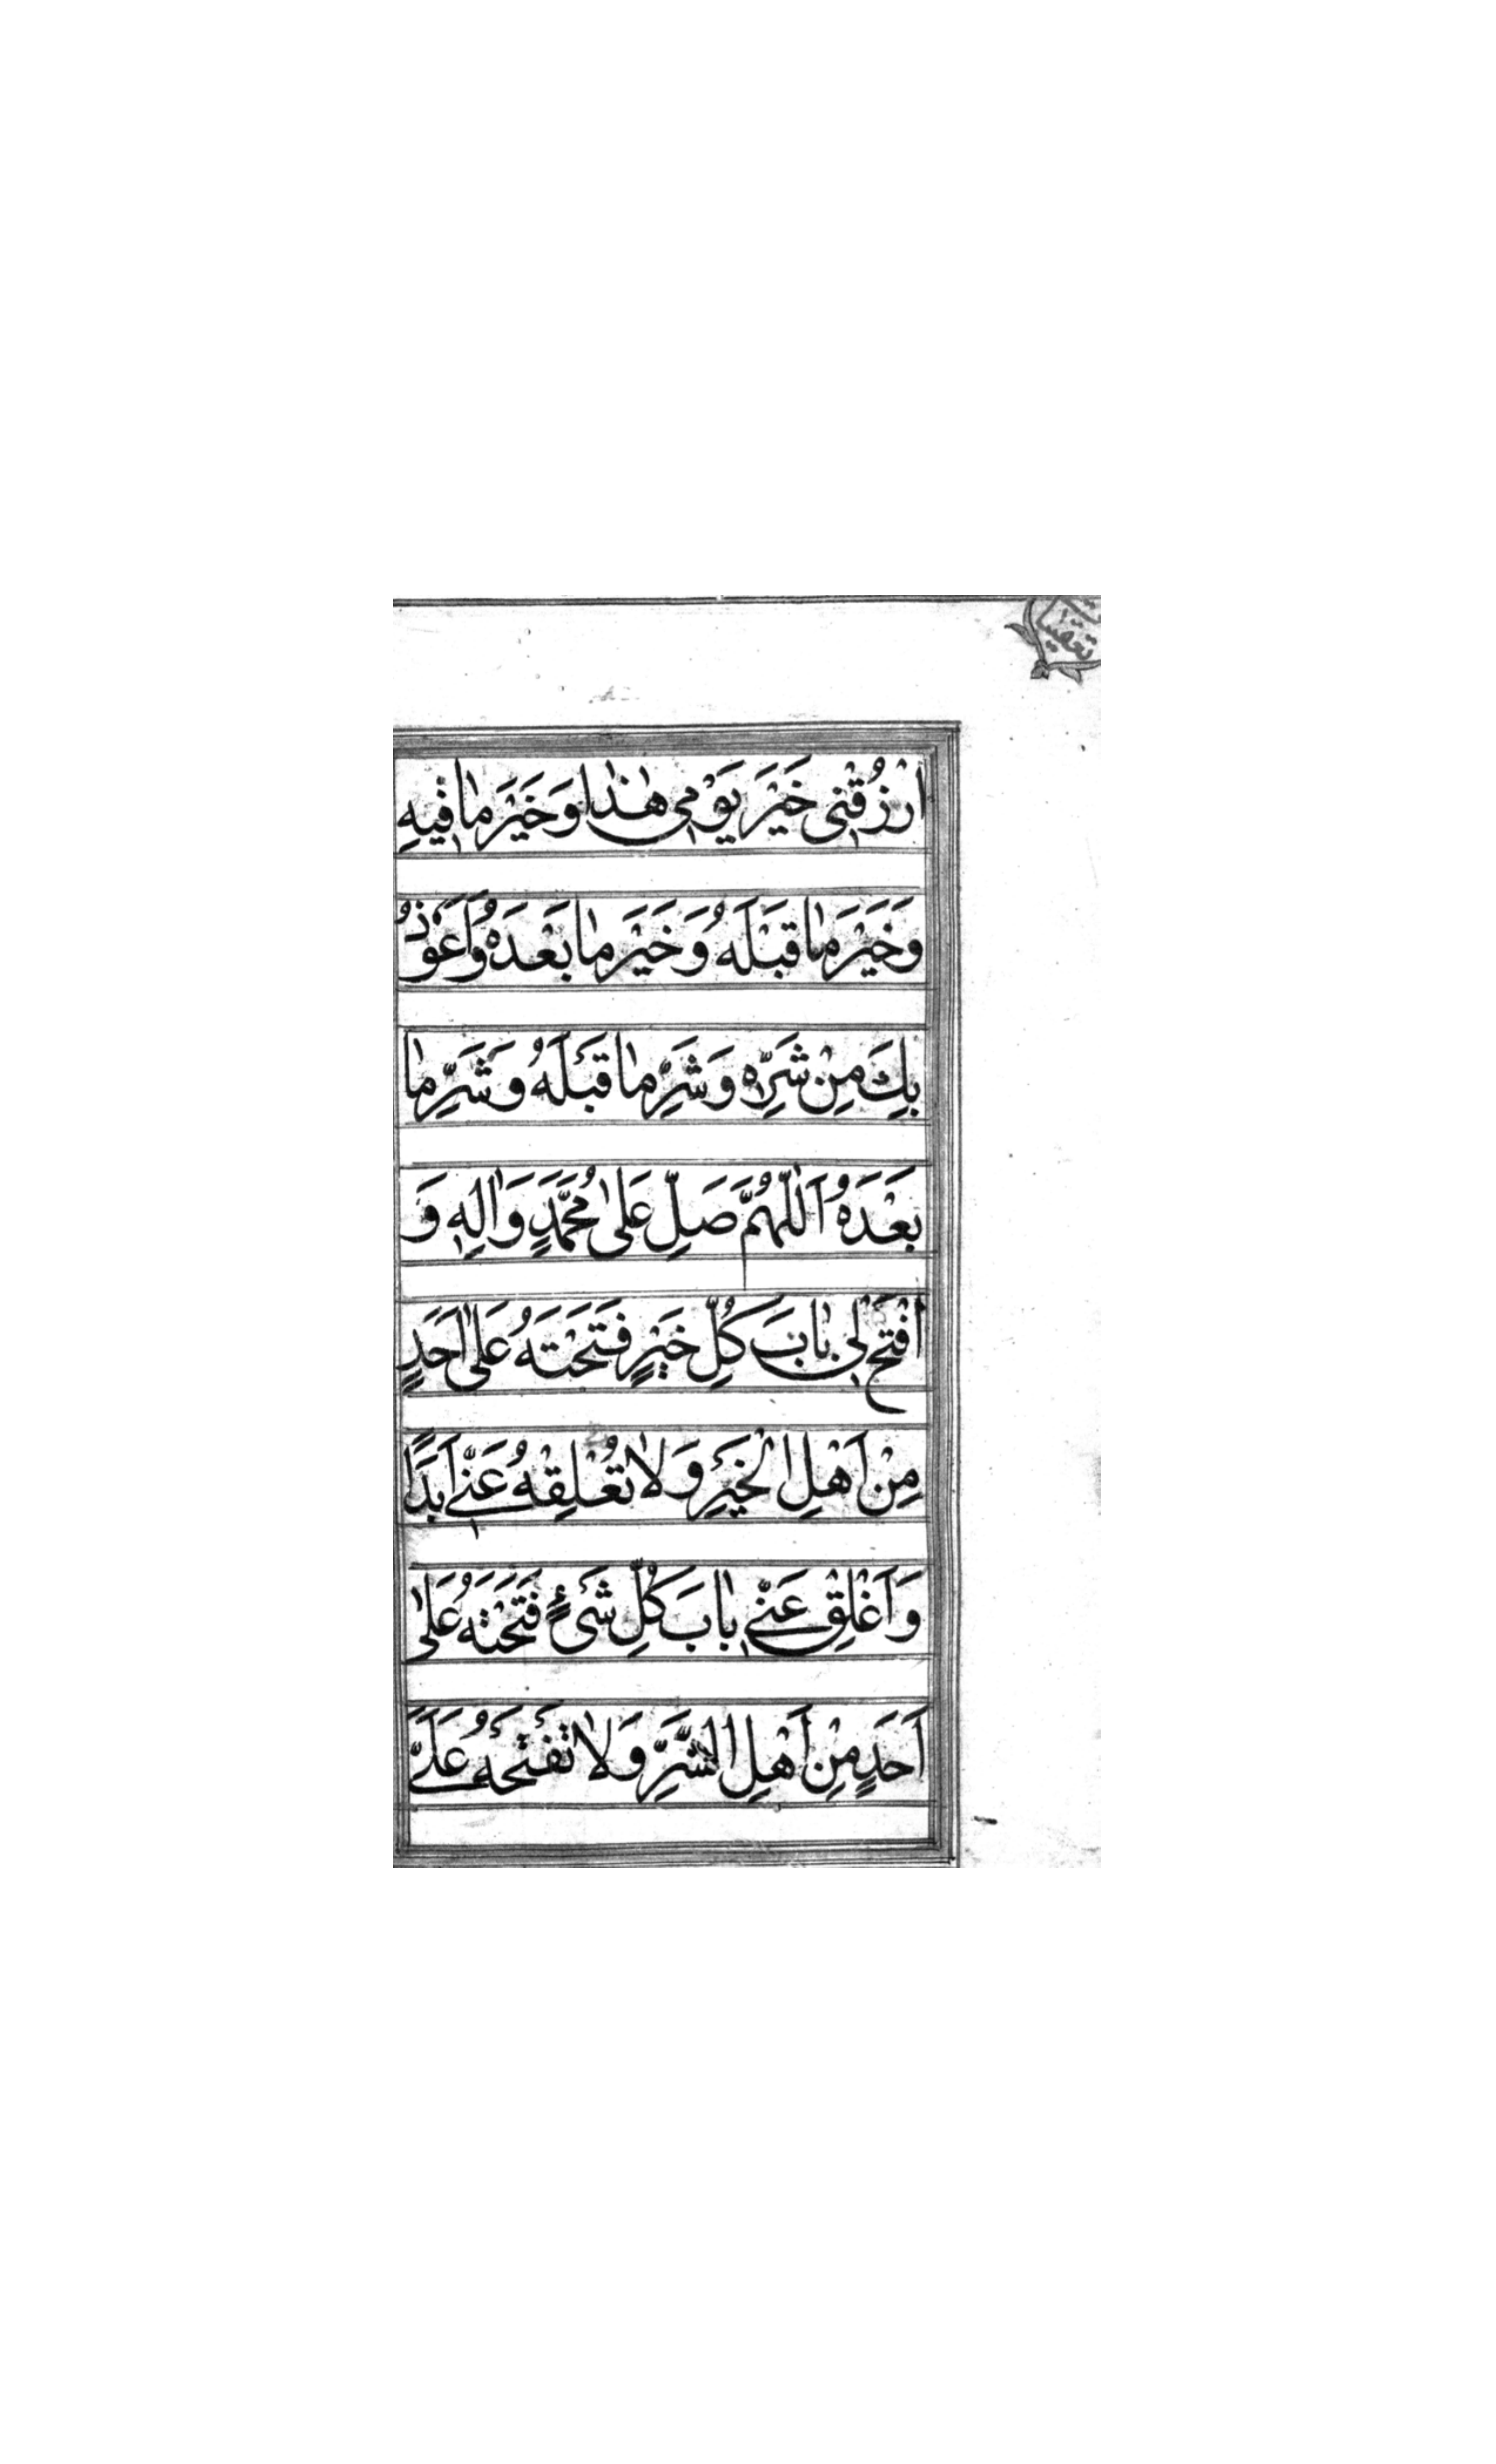 تعقيبات
اَرْزُقْنِي خَيْرَ يَوْمِي هٰذا وَخَيْرَ مٰا فيهِ
وَخَيْرَ مٰا قَبْلَهُ وَخَيْرَ مٰا بَعْدَهُ وَاَعُوذُ
بِكَ مِنْ شَرِّهِ وَشَرِّ مٰا قَبْلَهُ وَشَرِّ مٰا
بَعْدَهُ اَللّٰهُمَّ صَلِّ عَلىٰ مُحَمَّدٍ وَاٰلِهِ وَ
افْتَحْ لِي بٰابَ كُلِّ خَيْرٍ فَتَحْتَهُ عَلىٰ اَحَدٍ
مِنْ اَهْلِ الْخَيْرِ وَلاٰ تُغْلِقْهُ عَنّي اَبَدًا
وَاَغْلِقْ عَنّي بٰابَ كُلِّ شَيْءٍ فَتَحْتَهُ عَلىٰ
اَحَدٍ مِنْ اَهْلِ الشَّرِّ وَلاٰ تَفْتَحْهُ عَلَيَّ